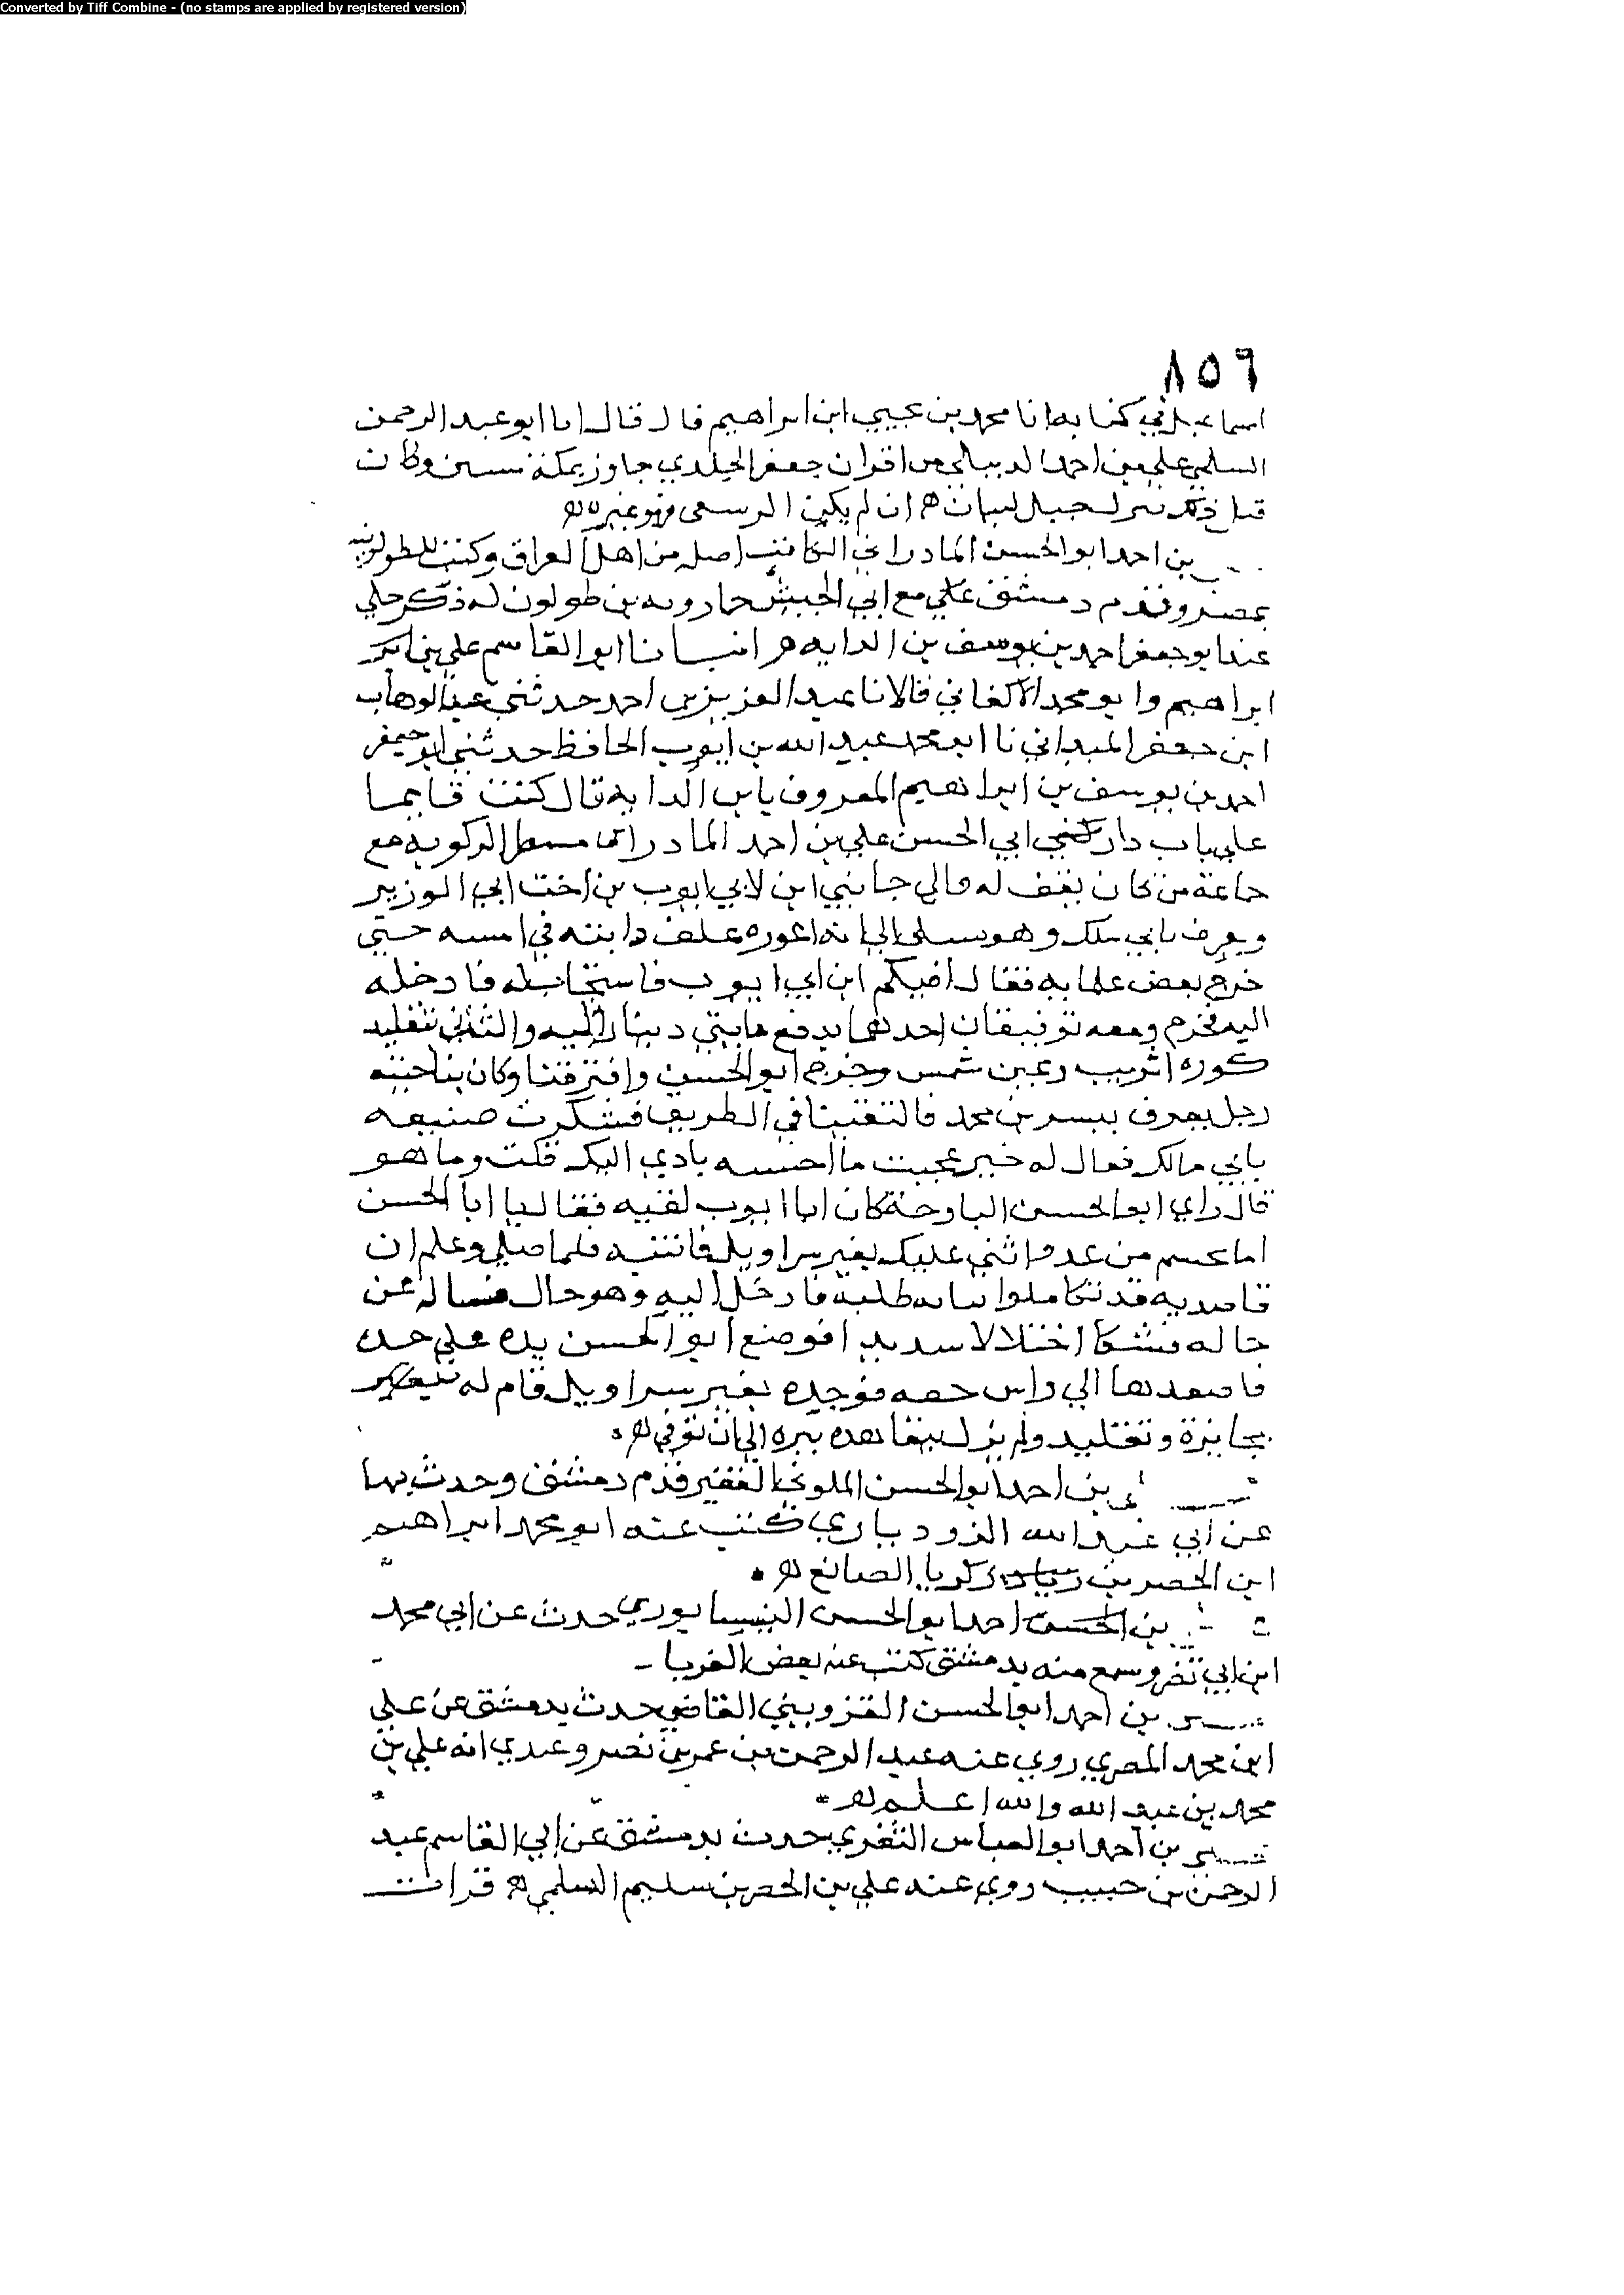 Converted by Tiff Combine - (no stamps are applied by registered version)
٨٥٦
اسماعيل في كتابه انا محمد بن يحيي ابن ابراهيم قال قال انا ابو عبد الرحمن
السلمي علي بن احمد الديبالي من اقران جعفر الخلدي جاوز بمكة سنين وكان
قبل ذلك نزل جبل لبنان ه ان لم يكن الرسعى فهو غيره
بن احمد ابو الحسن المادراني الكاتب اصله من اهل العراق وكتب للطولونيه
بمصر وقدم دمشق علي مع ابي الجيش خمارويه بن طولون له ذكر حكي
عنه ابو جعفر احمد بن يوسف بن الدايه ه انبانا ابو القاسم علي بن
ابراهيم وابو محمد الاكفاني قالا نا عبد العزيز بن احمد حدثني عبد الوهاب
ابن جعفر الميداني نا ابو محمد عبد الله بن ايوب الحافظ حدثني ابو جعفر
احمد بن يوسف بن ابراهيم المعروف بابن الدايه قال كنت قايما
علي باب دار ابي الحسن علي بن احمد المادراني الركوبه مع
جماعة من كان يقف له والي جانبي ابن لابي ايوب بن اخت ابي الوزير
ويعرف بابي وهو الي انه اعوزه علف دابته في امسه حتي
خرج بعض غلمانه فقال افيكم ابن ابي ايوب فاستجاب له فادخله
اليه فخرج ومعه توقيعان احدهما بدفع مايتي دينار اليه والثاني بتقليد
كوره اتريب وعين شمس وخرج ابو الحسن وافترقنا وكان بناحيته
رجل يعرف ببسر بن محمد فالتقينا في الطريق فشكرت صنيعه
بابي مالك فقال له خبر عجيب ما احسبه بادي اليك قلت وما هو
قال راي ابو الحسن البارحة كان ابا ايوب لقيه فقال يا ابا الحسن
اما من عليك بغير سراويل فانتبه فلما صلي وعلم ان
قاصديه قد تكاملوا ببابه طلبه فادخل اليه وهو حال فساله عن
حاله فشكا اختلالا شديدا فوضع ابو الحسن يده علي
فاصعدها الي راس فوجده بغير سراويل فام له
بجايزة وتقليد ولم يزل يتعاهده ببره الي ان توفي ه
بن احمد ابو الحسن الفقير قدم دمشق وحدث بها
عن ابي عبد الله الروذباري كتب عنه ابو محمد ابراهيم
ابن الخضر بن زكريا الصائغ ه
بن احمد ابو الحسن النيسابوري حدث عن ابي محمد
ابن ابي نصر وسمع منه بدمشق كتب عنه بعض الغربا
بن احمد ابو الحسن القزويني القاضي حدث بدمشق عن علي
ابن محمد المصري روي عنه عبد الرحمن بن عمر بن نصر وعندي انه علي بن
محمد بن عبد الله والله اعلم ه
بن احمد ابو العباس الثغري حدث بدمشق عن ابي القاسم عبد
الرحمن بن حبيب روي عنه علي بن الخضر بن سليم السلمي ه قرات